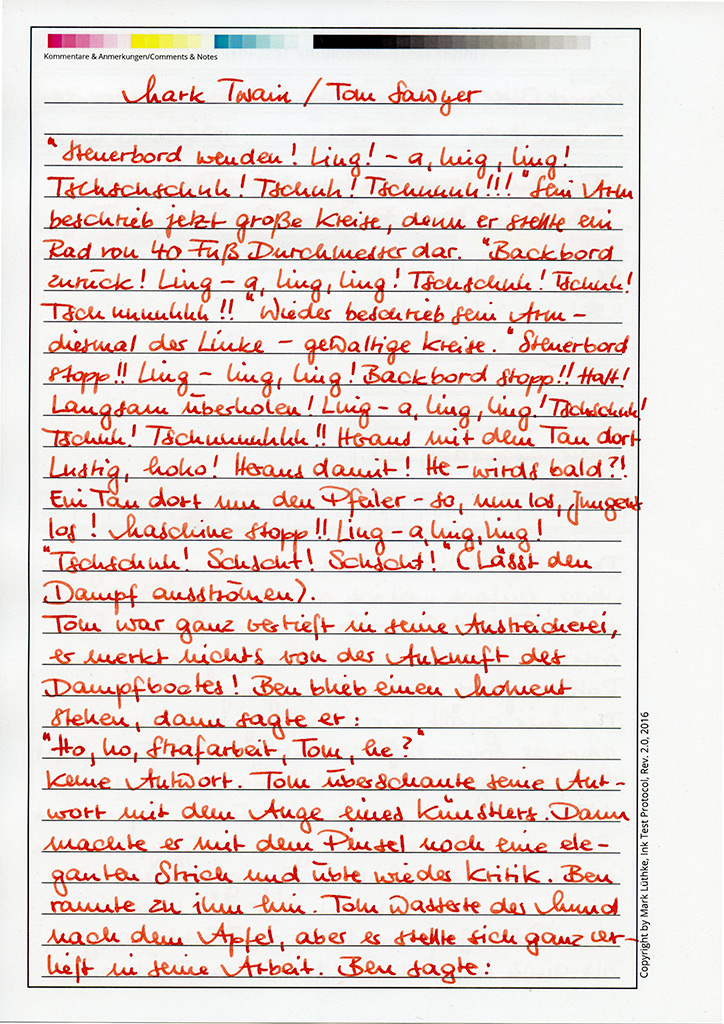 Kommentare & Anmerkungen/Comments & Notes
Mark Twain / Tom Sawyer
"Steuerbord wenden! Ling! - a, ling, ling!
Tschschschuh! Tschuh! Tschuuuuh!!!" Sein Arm
beschrieb jetzt große Kreise, denn er stellte ein
Rad von 40 Fuß Durchmesser dar. "Backbord
zurück! Ling - a, ling, ling! Tschschuh! Tschuh!
Tschuuuuhhh!!" Wieder beschrieb sein Arm -
diesmal der Linke - gewaltige Kreise. "Steuerbord
stopp!! Ling - ling, ling! Backbord stopp!! Halt!
Langsam überholen! Ling - a, ling, ling! Tschschuh!
Tschuh! Tschuuuuhhh!! Heraus mit dem Tau dort
Lustig, hoho! Heraus damit! He - wirds bald?!
Ein Tau dort um den Pfeiler - so, nun los, Jungens
los! Maschine stopp!! Ling - a, ling, ling!
"Tschschuh! Schscht! Schscht!" (Lässt den
Dampf ausströmen).
Tom war ganz vertieft in seine Anstreicherei,
er merkt nichts von der Ankunft des
Dampfbootes! Ben blieb einen Moment
stehen, dann sagte er:
"Ho, ho, Strafarbeit, Tom, he?"
Keine Antwort. Tom überschaute seine Ant-
wort mit dem Auge eines Künstlers. Dann
machte er mit dem Pinsel noch eine ele-
ganten Strich und übte wieder Kritik. Ben
rannte zu ihm hin. Tom wässerte der Mund
nach dem Apfel, aber er stellte sich ganz ver-
tieft in seine Arbeit. Ben sagte:
Copyright by Mark Lüthke, Ink Test Protocol, Rev. 2.0, 2016